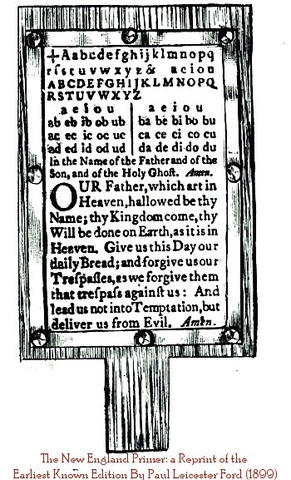 +Aabcdefghijklmnopq
rſstuvwxyz& aeiou
ABCDEFGHIJKLMNOPQ
RSTUVWXYZ
a e i o u a e i o u
ab eb ib ob ub ba be bi bo bu
ac ec ic oc uc ca ce ci co cu
ad ed id od ud da de di do du
In the Name of the Father and of the
Son, and of the Holy Ghoſt. Amen.
OUR Father, which art in
Heaven, hallowed be thy
Name; thy Kingdom come, thy
Will be done on Earth, as it is in
Heaven. Give us this Day our
daily Bread; and forgive us our
Treſpaſſes, as we forgive them
that treſpaſs againſt us: And
lead us not into Temptation, but
deliver us from Evil. Amen.
The New England Primer: a Reprint of the
Earliest Known Edition By Paul Leicester Ford (1899)